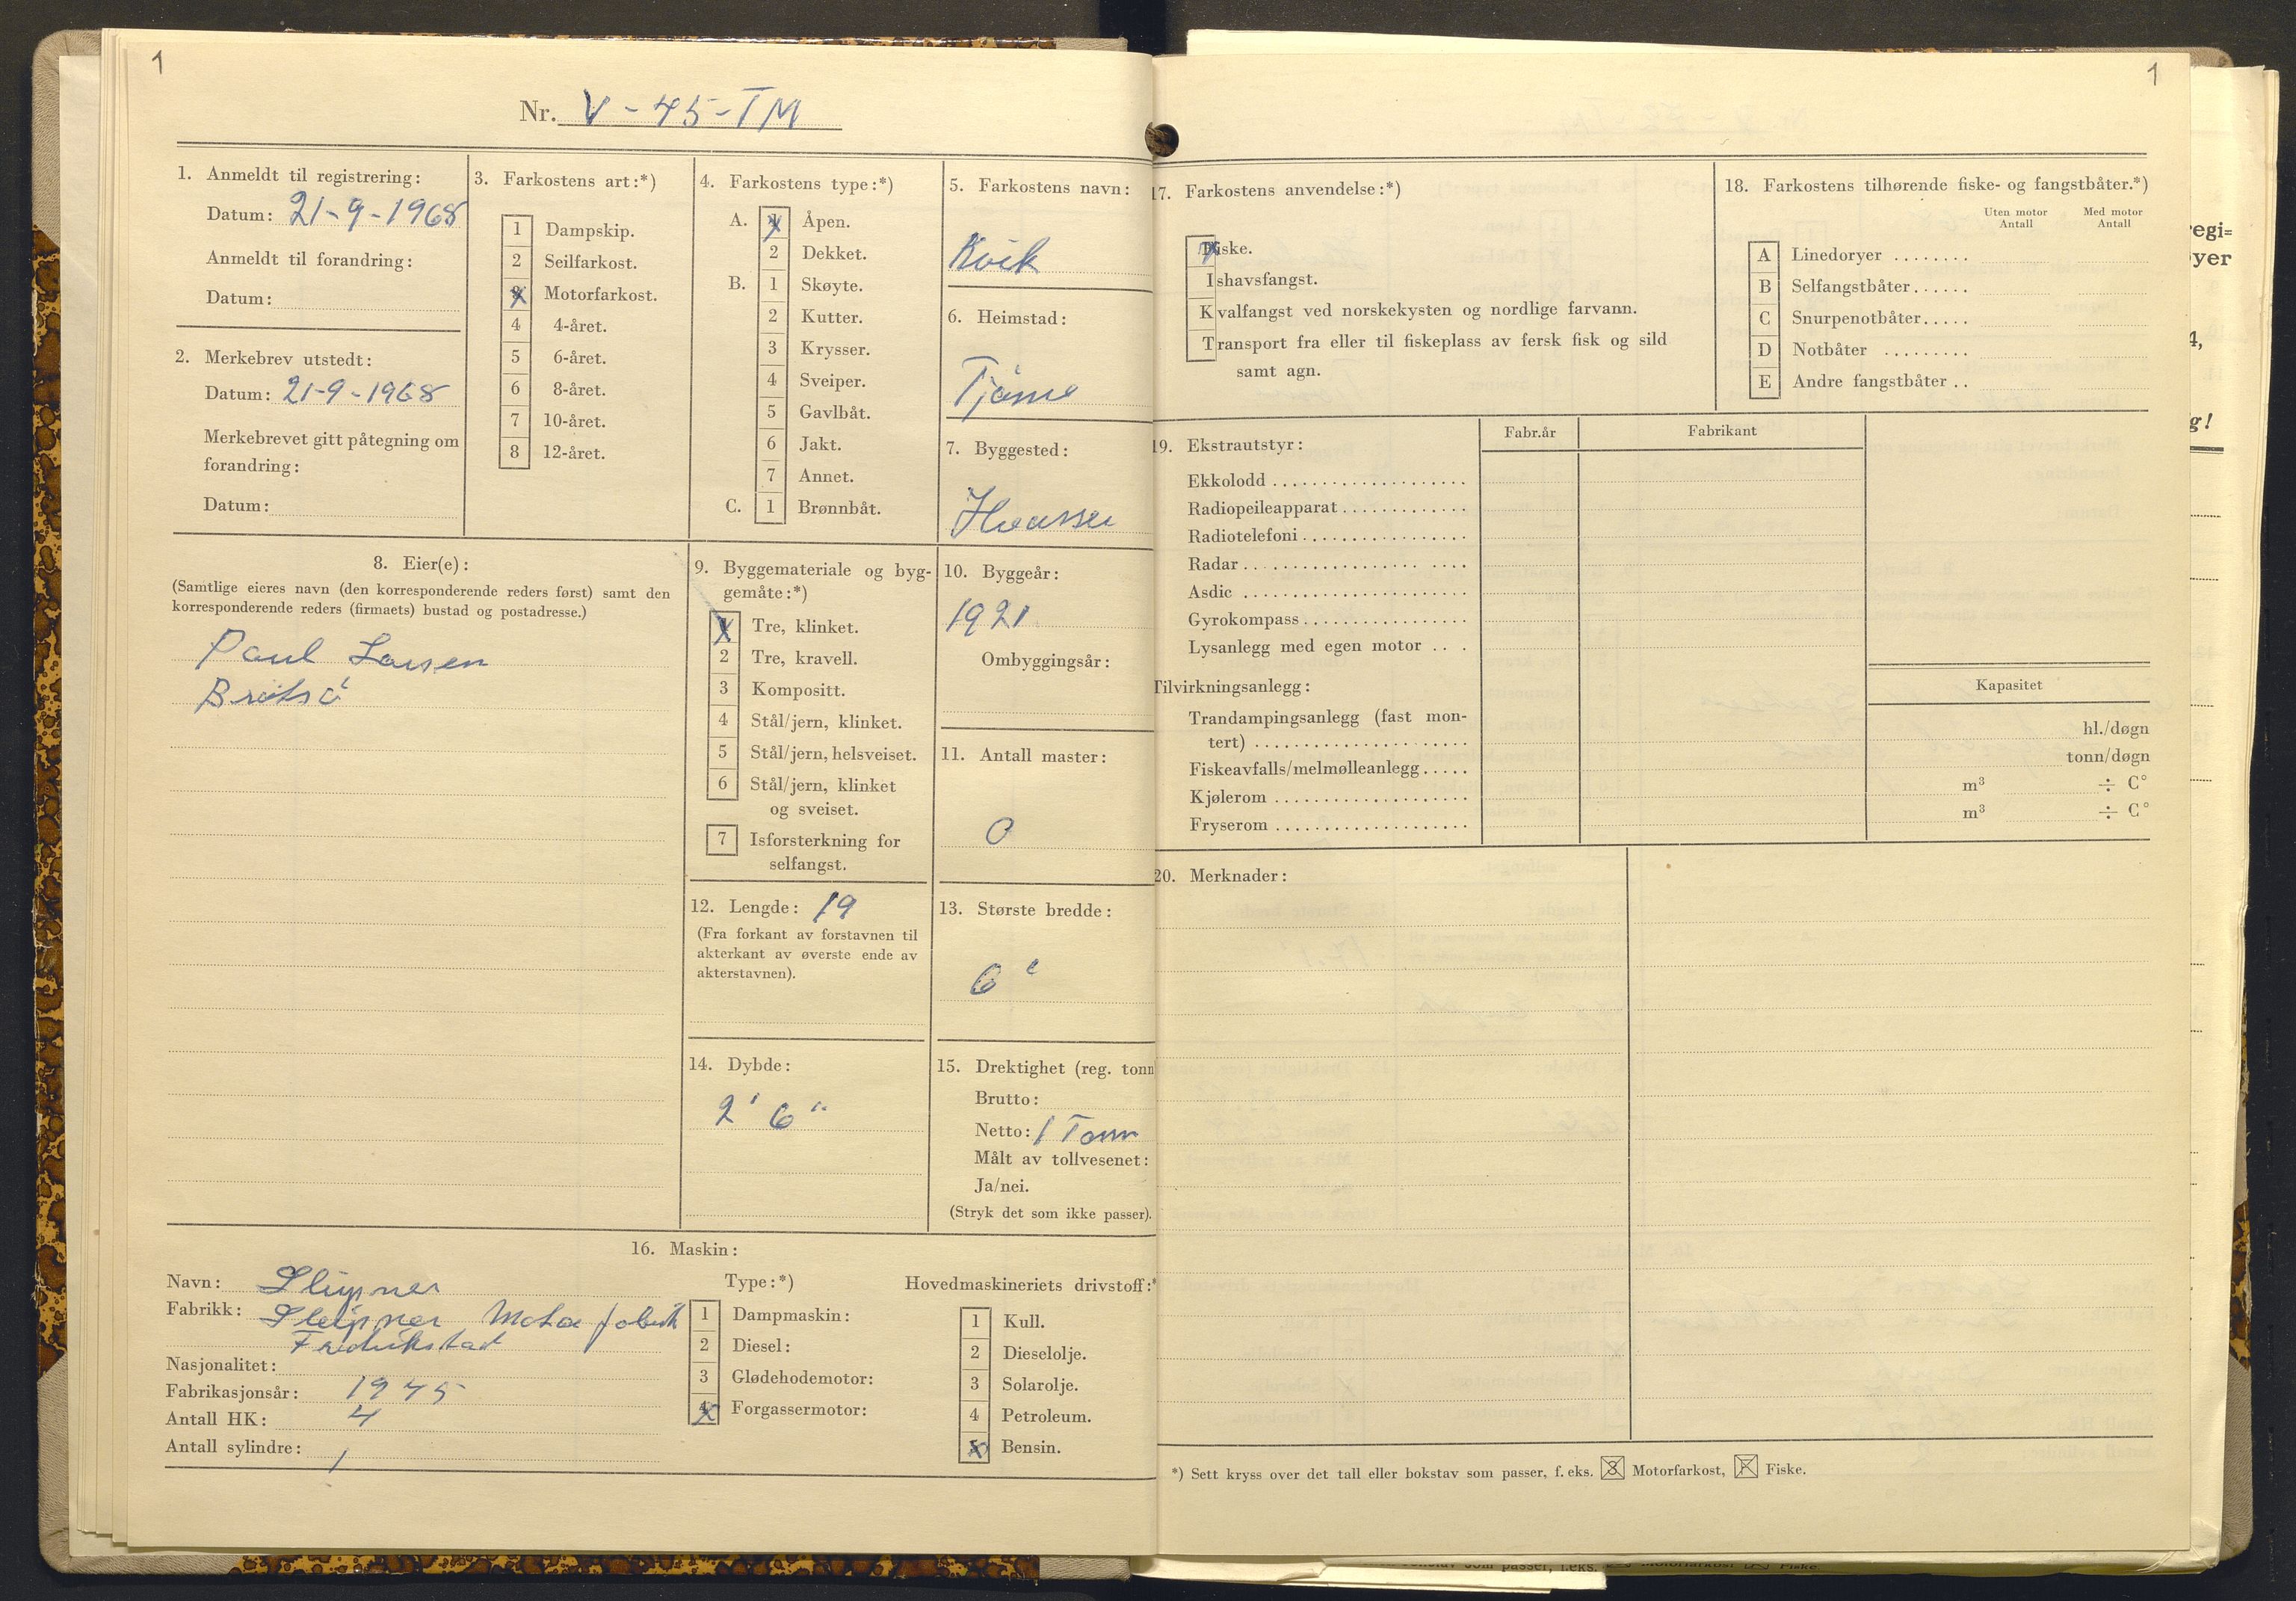 1
Nr. V-45-TM
1. Anmeldt til registrering:
Datum: 21-9-1968
Anmeldt til forandring:
Datum:
2. Merkebrev utstedt:
Datum: 21-9-1968
Merkebrevet gitt påtegning om
forandring:
Datum:
3. Farkostens art:*)
1 Dampskip.
2 Seilfarkost.
3 Motorfarkost.
4 4-året.
5 6-året.
6 8-året.
7 10-året.
8 12-året.
4. Farkostens type:*)
A. 1 Åpen.
2 Dekket.
B. 1 Skøyte.
2 Kutter.
3 Krysser.
4 Sveiper.
5 Gavlbåt.
6 Jakt.
7 Annet.
C. 1 Brønnbåt.
5. Farkostens navn:
Kvik
6. Heimstad:
Tjøme
7. Byggested:
Hvasser
8. Eier(e):
(Samtlige eieres navn (den korresponderende reders først) samt den
korresponderende reders (firmaets) bustad og postadresse.)
Paul Larsen
Brøtsø
9. Byggemateriale og byg-
gemåte:*)
1 Tre, klinket.
2 Tre, kravell.
3 Kompositt.
4 Stål/jern, klinket.
5 Stål/jern, helsveiset.
6 Stål/jern, klinket
og sveiset.
7 Isforsterkning for
selfangst.
10. Byggeår:
1921
Ombyggingsår:
11. Antall master:
0
12. Lengde: 19
(Fra forkant av forstavnen til
akterkant av øverste ende av
akterstavnen).
13. Største bredde:
6'
14. Dybde:
2' 6"
15. Drektighet (reg. tonn
Brutto:
Netto: 1 Tonn
Målt av tollvesenet:
Ja/nei.
(Stryk det som ikke passer).
16. Maskin:
Navn: Sleipner
Fabrikk: Sleipner Motor fabrik
Fredrikstad
Nasjonalitet:
Fabrikasjonsår: 1945
Antall HK: 4
Antall sylindre: 1
Type:*)
1 Dampmaskin:
2 Diesel:
3 Glødehodemotor:
4 Forgassermotor:
Hovedmaskineriets drivstoff:*
1 Kull.
2 Dieselolje.
3 Solarolje.
4 Petroleum.
5 Bensin.
1
17. Farkostens anvendelse:*)
Fiske.
Ishavsfangst.
Kvalfangst ved norskekysten og nordlige farvann.
Transport fra eller til fiskeplass av fersk fisk og sild
samt agn.
18. Farkostens tilhørende fiske- og fangstbåter.*)
Uten motor Med motor
Antall Antall
A Linedoryer ........
B Selfangstbåter......
C Snurpenotbåter.....
D Notbåter .........
E Andre fangstbåter ..
19. Ekstrautstyr:
Fabr.år Fabrikant
Ekkolodd ....................
Radiopeileapparat .............
Radiotelefoni .................
Radar .......................
Asdic .......................
Gyrokompass .................
Lysanlegg med egen motor ...
Tilvirkningsanlegg:
Kapasitet
Trandampingsanlegg (fast mon-
tert) ...................... hl./døgn
Fiskeavfalls/melmølleanlegg ..... tonn/døgn
Kjølerom .................... m³ ÷ C°
Fryserom .................... m³ ÷ C°
20. Merknader:
*) Sett kryss over det tall eller bokstav som passer, f. eks. 3 Motorfarkost, F Fiske.
regi=
yer
4,
g!